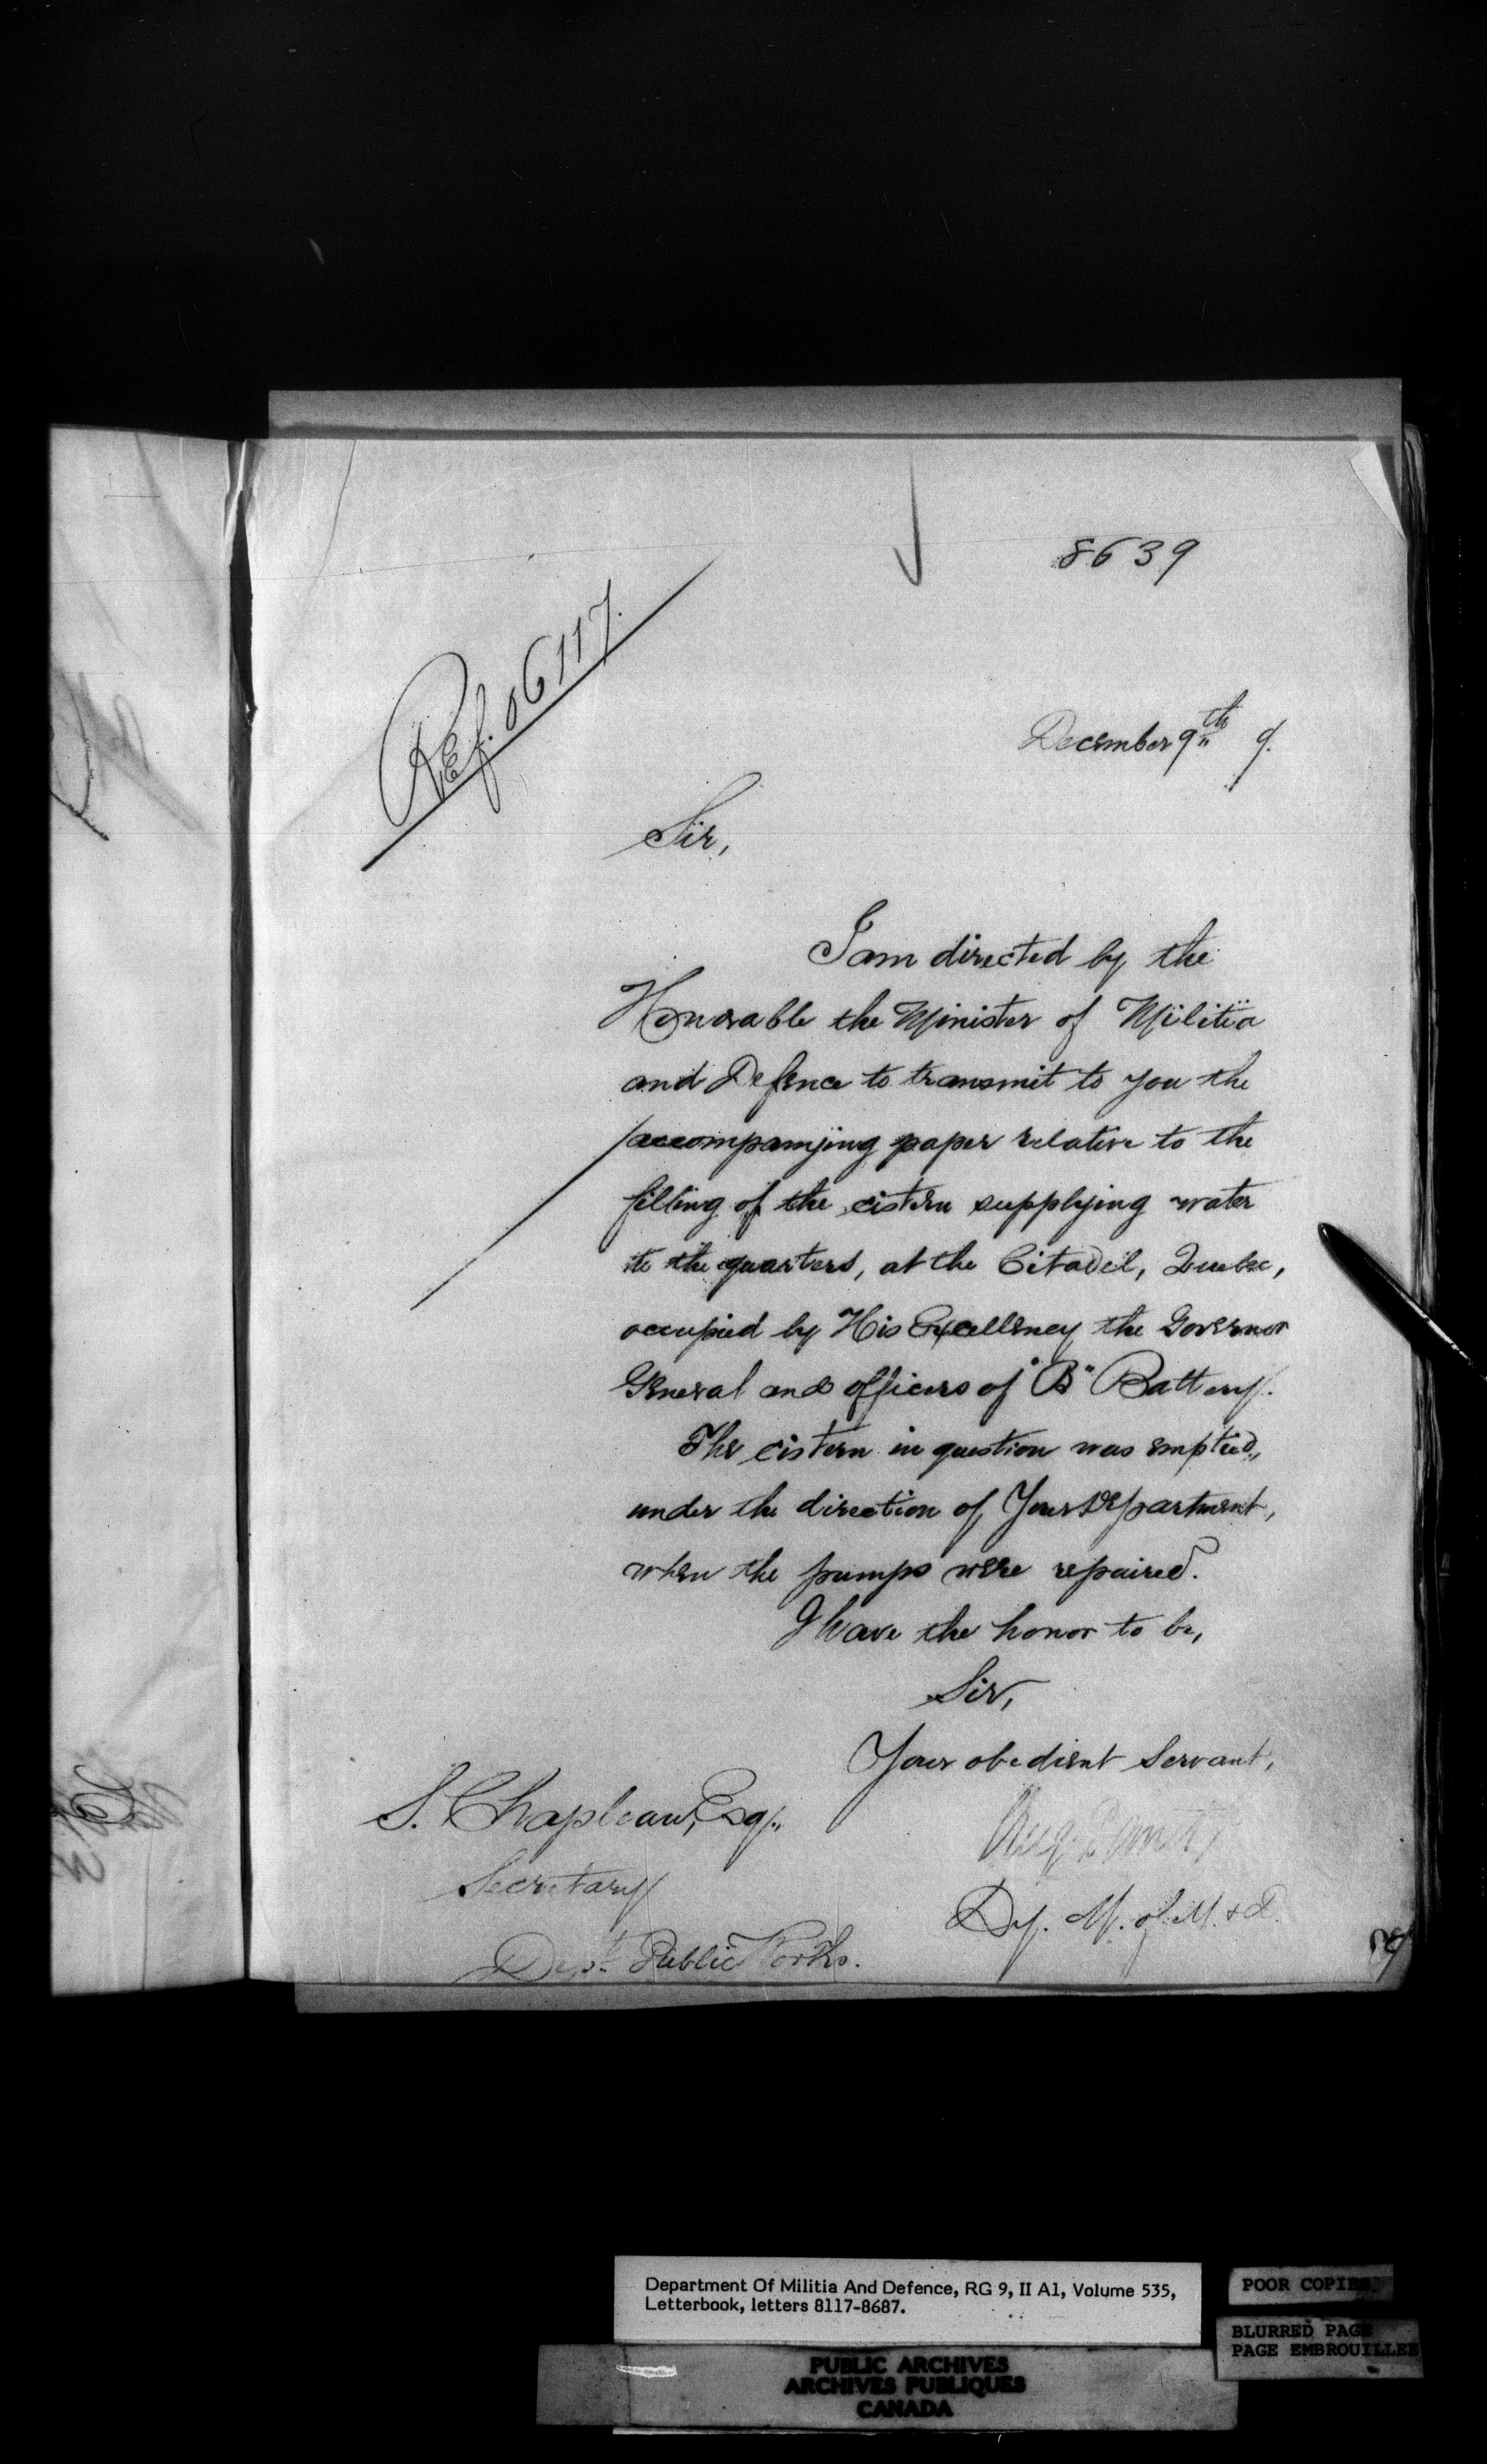 8639
Ref. 06117.
December 9th 9.
Sir,
I am directed by the
Honorable the Minister of Militia
and Defence to transmit to you the
accompanying paper relative to the
filling of the cistern supplying water
to the quarters, at the Citadel, Quebec,
occupied by His Excellency the Governor
General and officers of "B" Battery.
The cistern in question was emptied,
under the direction of Your Department,
when the pumps were repaired.
I have the honor to be,
Sir,
Your obedient servant,
S. Chapleau, Esq.,
Secretary
Dept. Public Works.
Dy. M. of M. & D.
Department Of Militia And Defence, RG 9, II A1, Volume 535,
Letterbook, letters 8117-8687.
POOR COPIES
BLURRED PAGE
PAGE EMBROUILLEE
PUBLIC ARCHIVES
ARCHIVES PUBLIQUES
CANADA